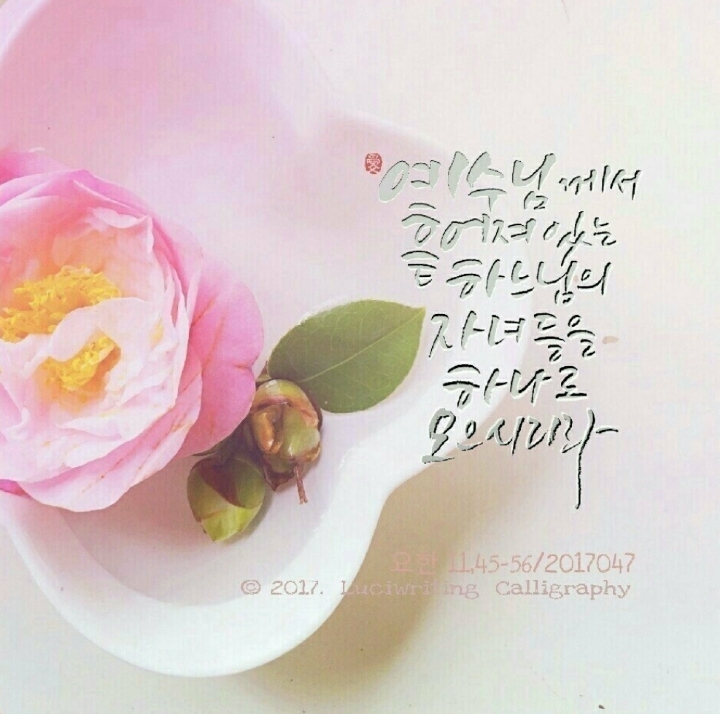 愛
예수님께서
흩어져 있는
하느님의
자녀들을
하나로
모으시리라
요한 11,45-56/2017047
© 2017. Luciwriting Calligraphy